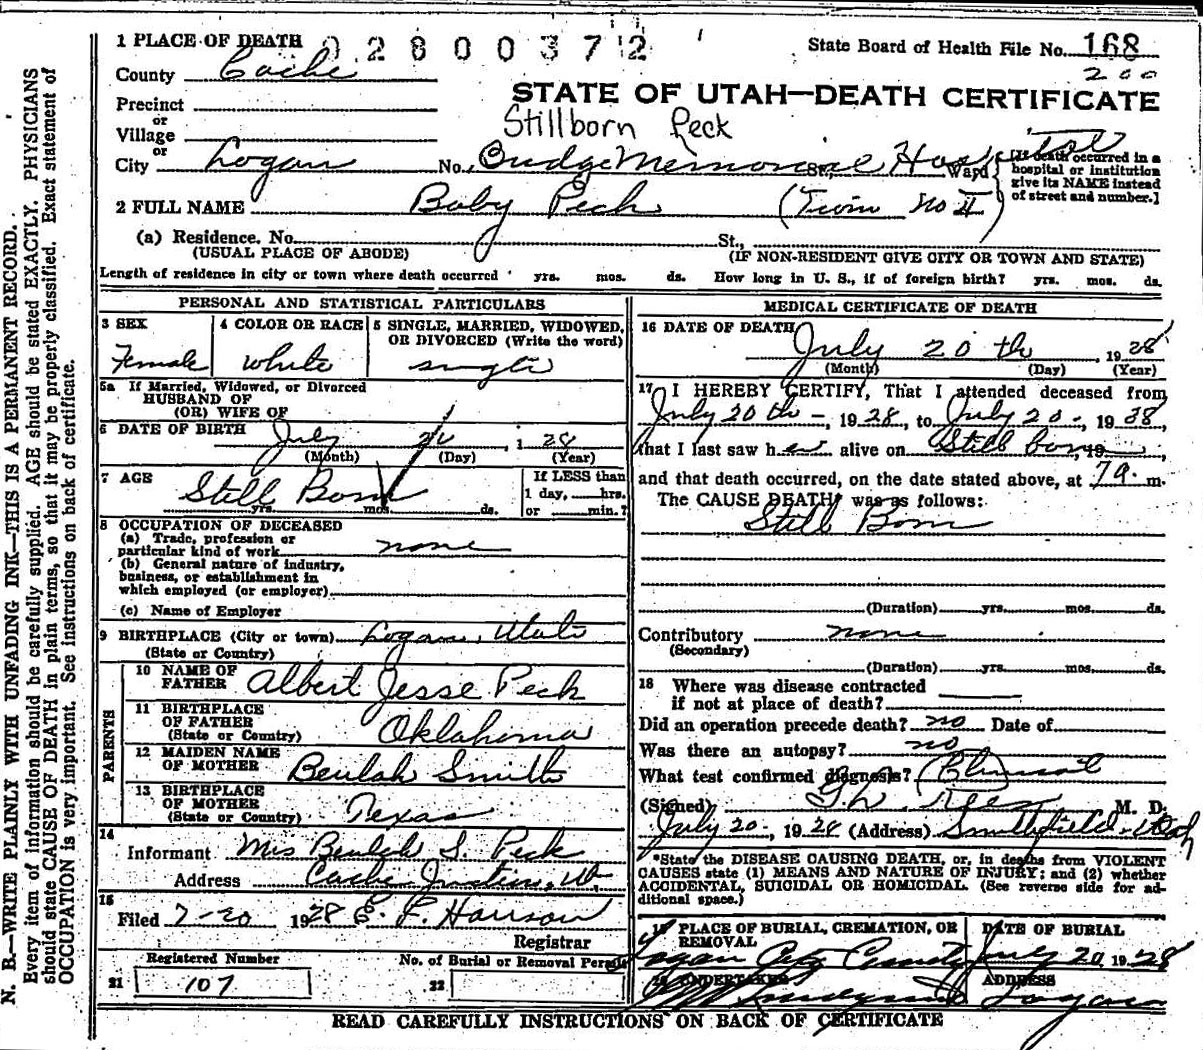 1 PLACE OF DEATH 02800372 State Board of Health File No. 168
County Cache 200
STATE OF UTAH—DEATH CERTIFICATE
Precinct
or
Village Stillborn Peck
or
City Logan No. Budge Memorial Hospital St., Ward
[If death occurred in a
hospital or institution
give its NAME instead
of street and number.]
2 FULL NAME Baby Peck (Twin No II)
(a) Residence. No. St.,
(USUAL PLACE OF ABODE) (IF NON-RESIDENT GIVE CITY OR TOWN AND STATE)
Length of residence in city or town where death occurred yrs. mos. ds. How long in U. S., if of foreign birth? yrs. mos. ds.
PERSONAL AND STATISTICAL PARTICULARS
3 SEX 4 COLOR OR RACE 5 SINGLE, MARRIED, WIDOWED,
OR DIVORCED (Write the word)
Female white single
5a If Married, Widowed, or Divorced
HUSBAND OF
(OR) WIFE OF
6 DATE OF BIRTH July 20 1 28
(Month) (Day) (Year)
7 AGE Still Born If LESS than
1 day, hrs.
yrs. mos. ds. or min.?
8 OCCUPATION OF DECEASED
(a) Trade, profession or
particular kind of work none
(b) General nature of industry,
business, or establishment in
which employed (or employer)
(c) Name of Employer
9 BIRTHPLACE (City or town) Logan, Utah
(State or Country)
PARENTS
10 NAME OF
FATHER Albert Jesse Peck
11 BIRTHPLACE
OF FATHER
(State or Country) Oklahoma
12 MAIDEN NAME
OF MOTHER Beulah Smith
13 BIRTHPLACE
OF MOTHER
(State or Country) Texas
14
Informant Mrs Beulah S. Peck
Address Cache Junction, Ut
15
Filed 7-20 1928 E. L. Hanson
Registrar
Registered Number No. of Burial or Removal Permit
21 107 22
MEDICAL CERTIFICATE OF DEATH
16 DATE OF DEATH July 20 th, 1928
(Month) (Day) (Year)
17 I HEREBY CERTIFY, That I attended deceased from
July 20th -, 1928, to July 20 -, 1938,
that I last saw her alive on Still born, 19
and that death occurred, on the date stated above, at 7a. m.
The CAUSE DEATH was as follows:
Still Born
(Duration) yrs. mos. ds.
Contributory none
(Secondary)
(Duration) yrs. mos. ds.
18 Where was disease contracted
if not at place of death?
Did an operation precede death? no Date of
Was there an autopsy? no
What test confirmed diagnosis? Clinical
(Signed) M. D.
July 20, 1928 (Address) Smithfield - Utah
*State the DISEASE CAUSING DEATH, or, in deaths from VIOLENT
CAUSES state (1) MEANS AND NATURE OF INJURY; and (2) whether
ACCIDENTAL, SUICIDAL OR HOMICIDAL. (See reverse side for ad-
ditional space.)
19 PLACE OF BURIAL, CREMATION, OR DATE OF BURIAL
REMOVAL
Logan City Cemetery July 20 1928
20 UNDERTAKER ADDRESS
Logan
READ CAREFULLY INSTRUCTIONS ON BACK OF CERTIFICATE
N. B.—WRITE PLAINLY WITH UNFADING INK—THIS IS A PERMANENT RECORD.
Every item of information should be carefully supplied. AGE should be stated EXACTLY. PHYSICIANS
should state CAUSE OF DEATH in plain terms, so that it may be properly classified. Exact statement of
OCCUPATION is very important. See instructions on back of certificate.